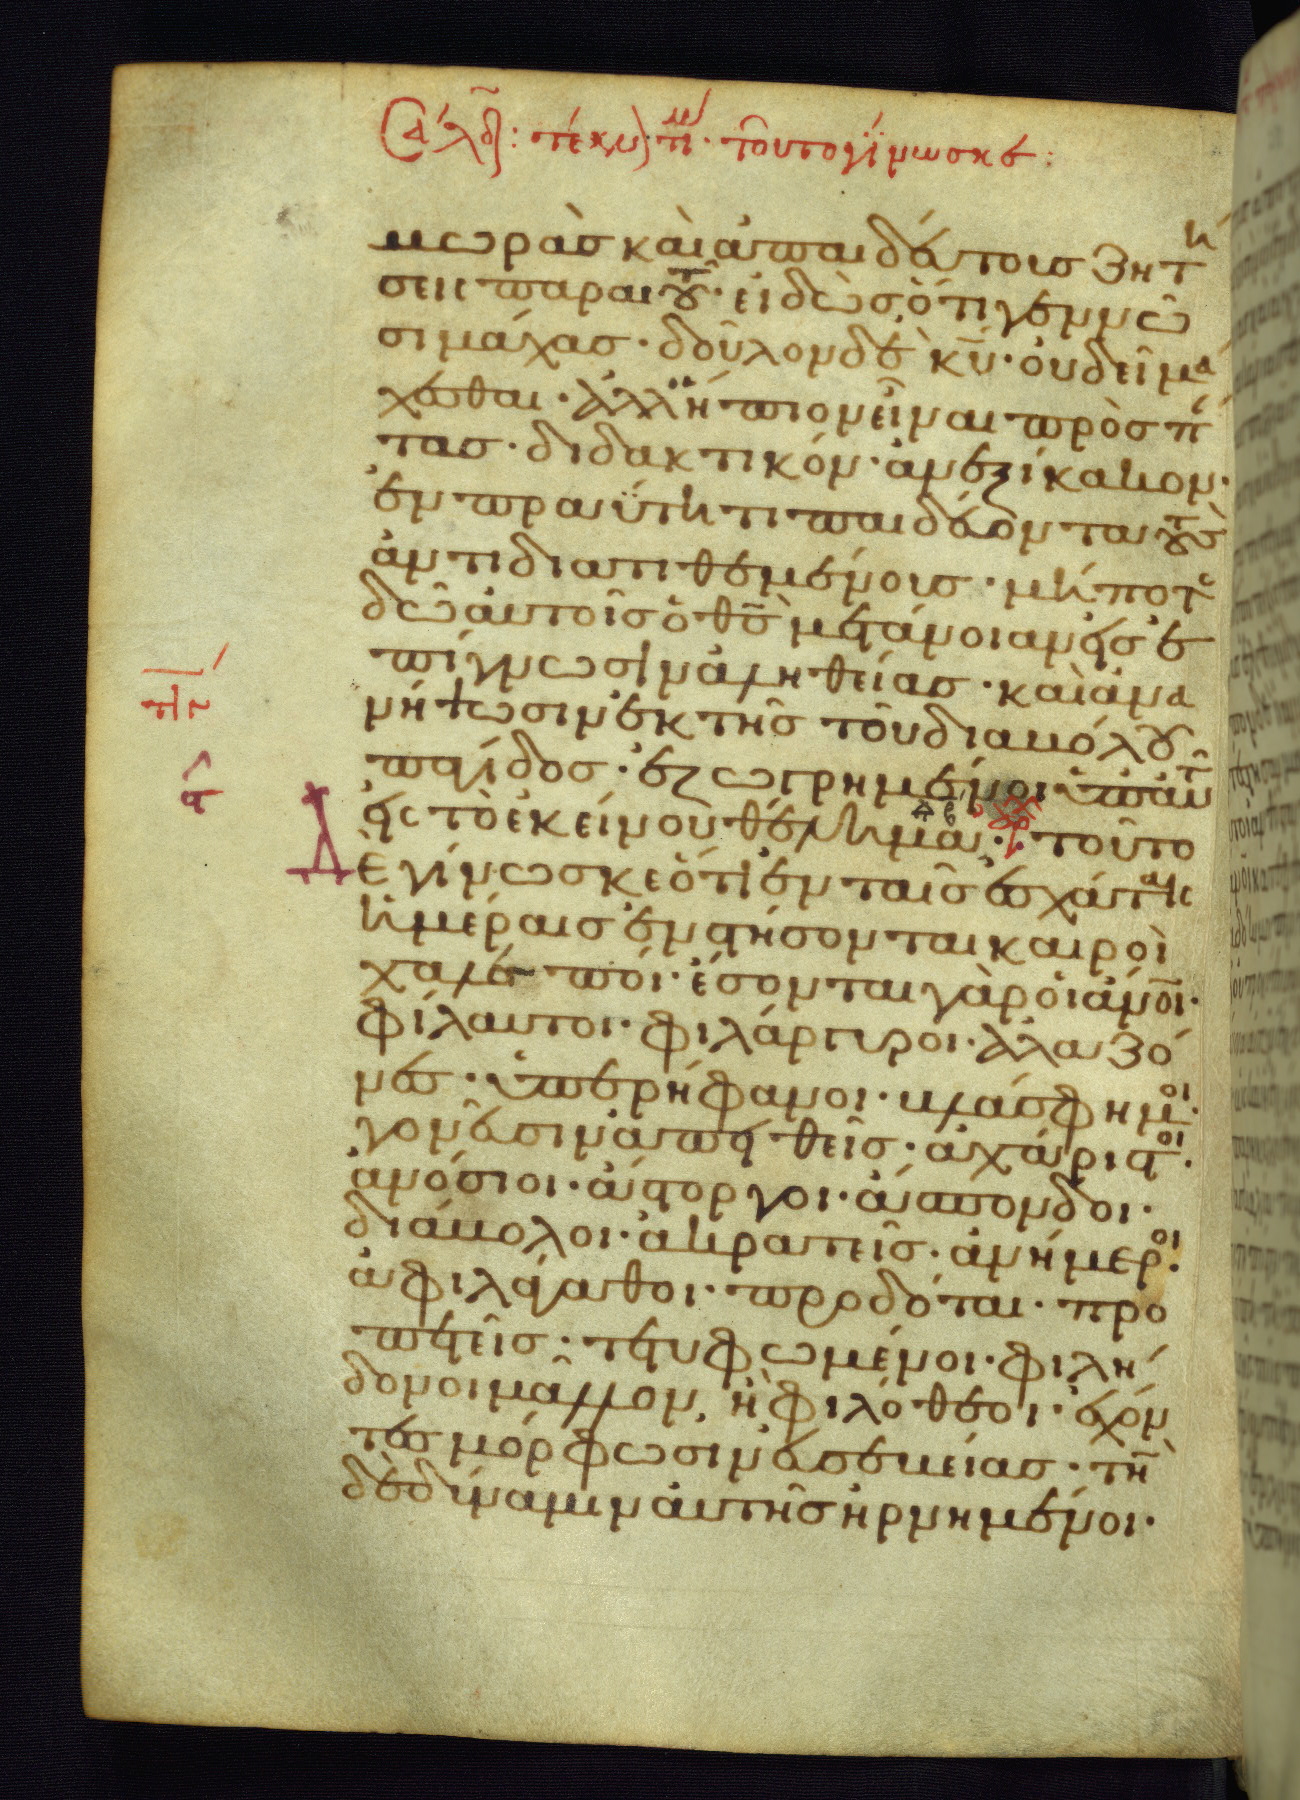 τέκνον τι· τοῦτο γίνωσκε:
μωρὰσ καὶ ἀπαιδεύτουσ ζητή
σεισ παραιτοῦ· εἰδὼσ, ὅτι γεννῶ
σι μάχασ· δοῦλον δὲ κ̅υ̅· οὐ δεῖ μά
χεσθαι· ἀλλ' ἤπιον εἶναι πρὸσ πάν
τασ· διδακτικόν· ἀνεξίκακον·
ἐν πραΰτητι παιδεύοντα τοὺσ
ἀντιδιατιθεμένουσ· μήποτε
δῶ αὐτοῖσ ὁ θ̅σ̅ μετάνοιαν εἰσ ἐ
πίγνωσιν ἀληθείασ· καὶ ἀνα
νήψωσιν ἐκ τῆσ τοῦ διαβόλου
παγίδοσ· ἐζωγρημένοι ὑπ' αὐτοῦ
εἰσ τὸ ἐκείνου θέλημα· τοῦτο
Δὲ γίνωσκε ὅτι ἐν ταῖσ ἐσχάταισ
ἡμέραισ ἐνστήσονται καιροὶ
χαλεποί· ἔσονται γὰρ οἱ ἄν̅ο̅ι̅·
φίλαυτοι· φιλάργυροι· ἀλαζό
νεσ· ὑπερήφανοι· βλάσφημοι·
γονεῦσιν ἀπειθεῖσ· ἀχάριστοι·
ἀνόσιοι· ἄστοργοι· ἄσπονδοι·
διάβολοι· ἀκρατεῖσ· ἀνήμεροι·
ἀφιλάγαθοι· προδόται· προ
πετεῖσ· τετυφωμένοι· φιλή
δονοι μᾶλλον, ἢ φιλόθεοι· ἔχον
τεσ μόρφωσιν εὐσεβείασ· τὴν
δὲ δύναμιν αὐτῆσ ἠρνημένοι·